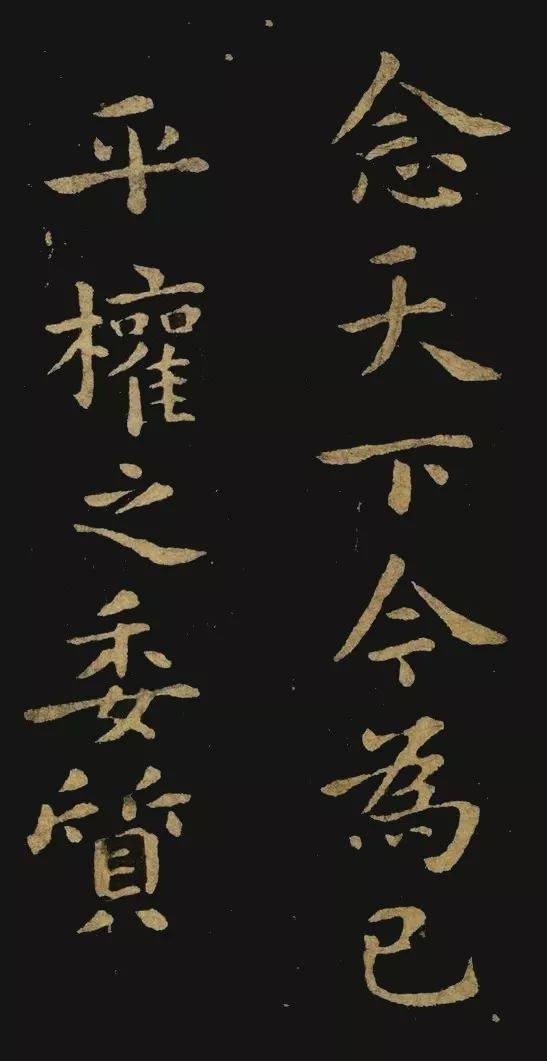 念天下今為已
平權之委質